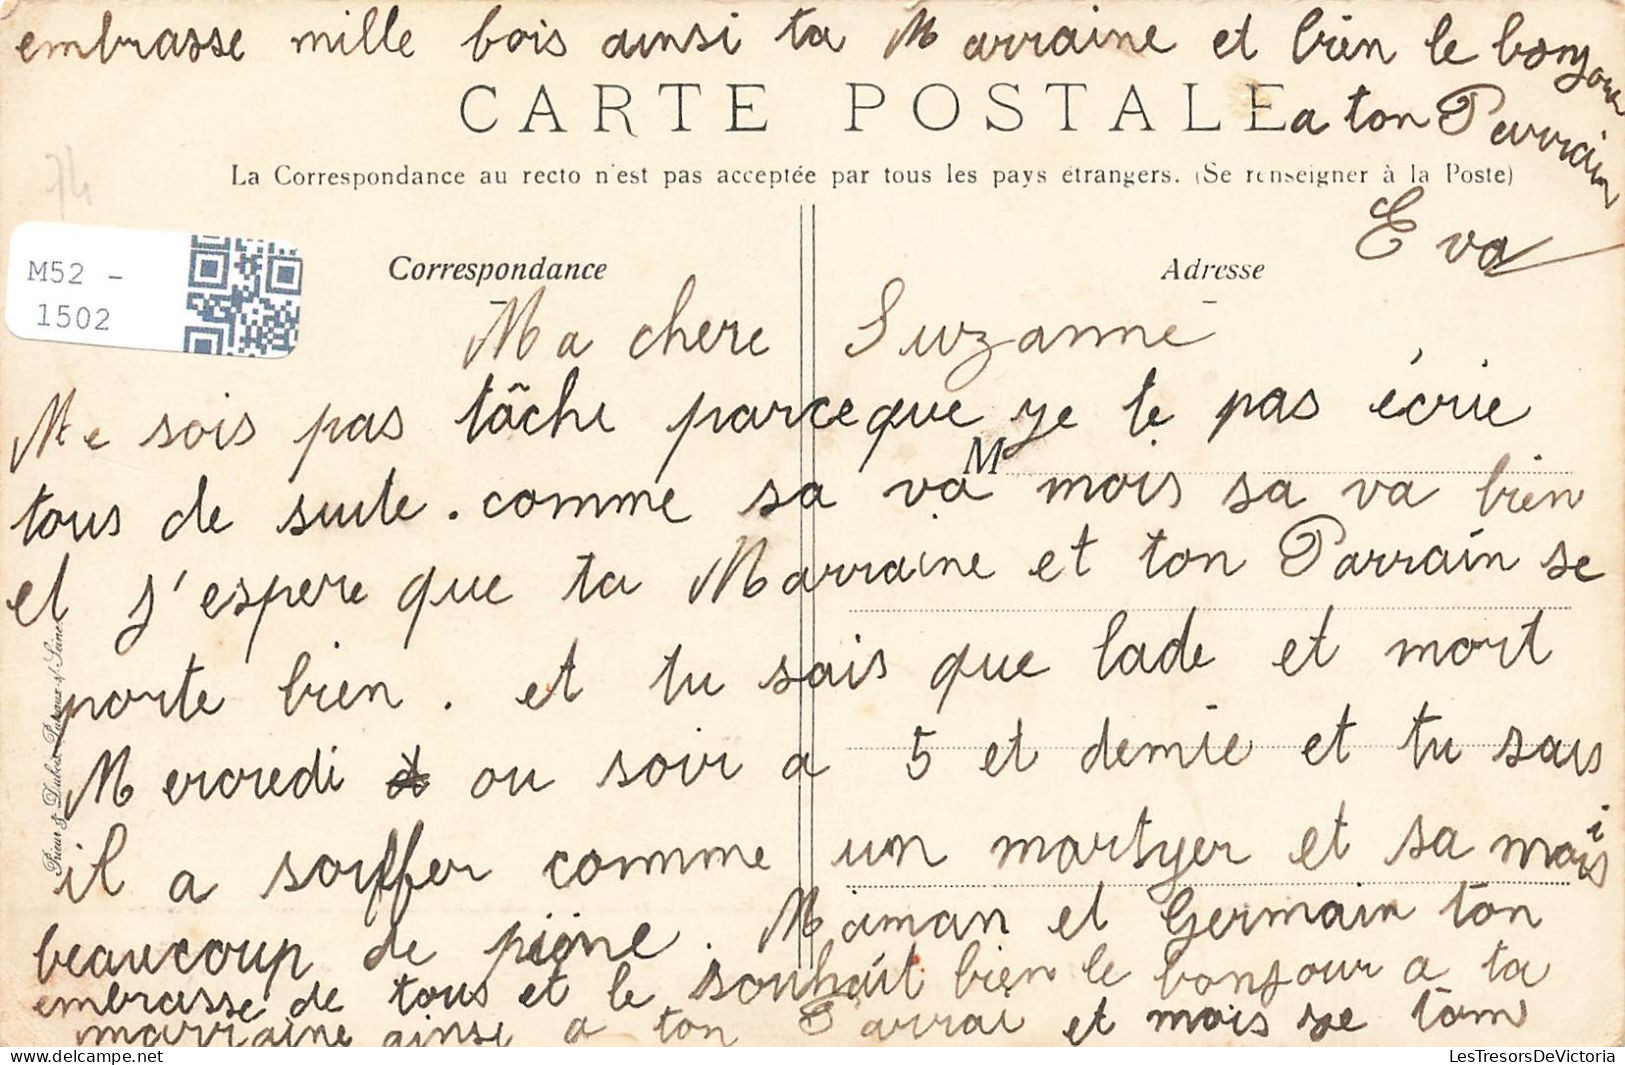 embrasse mille bois ainsi ta Marraine et bien le bonjour
CARTE POSTALE
a ton Parrain
La Correspondance au recto n'est pas acceptée par tous les pays étrangers. (Se renseigner à la Poste)
Eva
M52 -
1502
Correspondance
Adresse
Ma chere Suzanne
Ne sois pas tâche parceque ye te pas écrie
M
tous de suite. comme sa va mois sa va bien
et j'espere que ta Marraine et ton Parrain se
porte bien. et tu sais que lade et mort
Mercredi ou soir a 5 et demie et tu sais
il a souffer comme un martyer et sa mais
beaucoup de pigne. Maman et Germain ton
embrasse de tous et le souhait bien le bonjour a ta
marraine ainsi a ton Parrai et mois ye tom
Prieur & Dubois Puteaux s/ Seine
74
LesTresorsDeVictoria